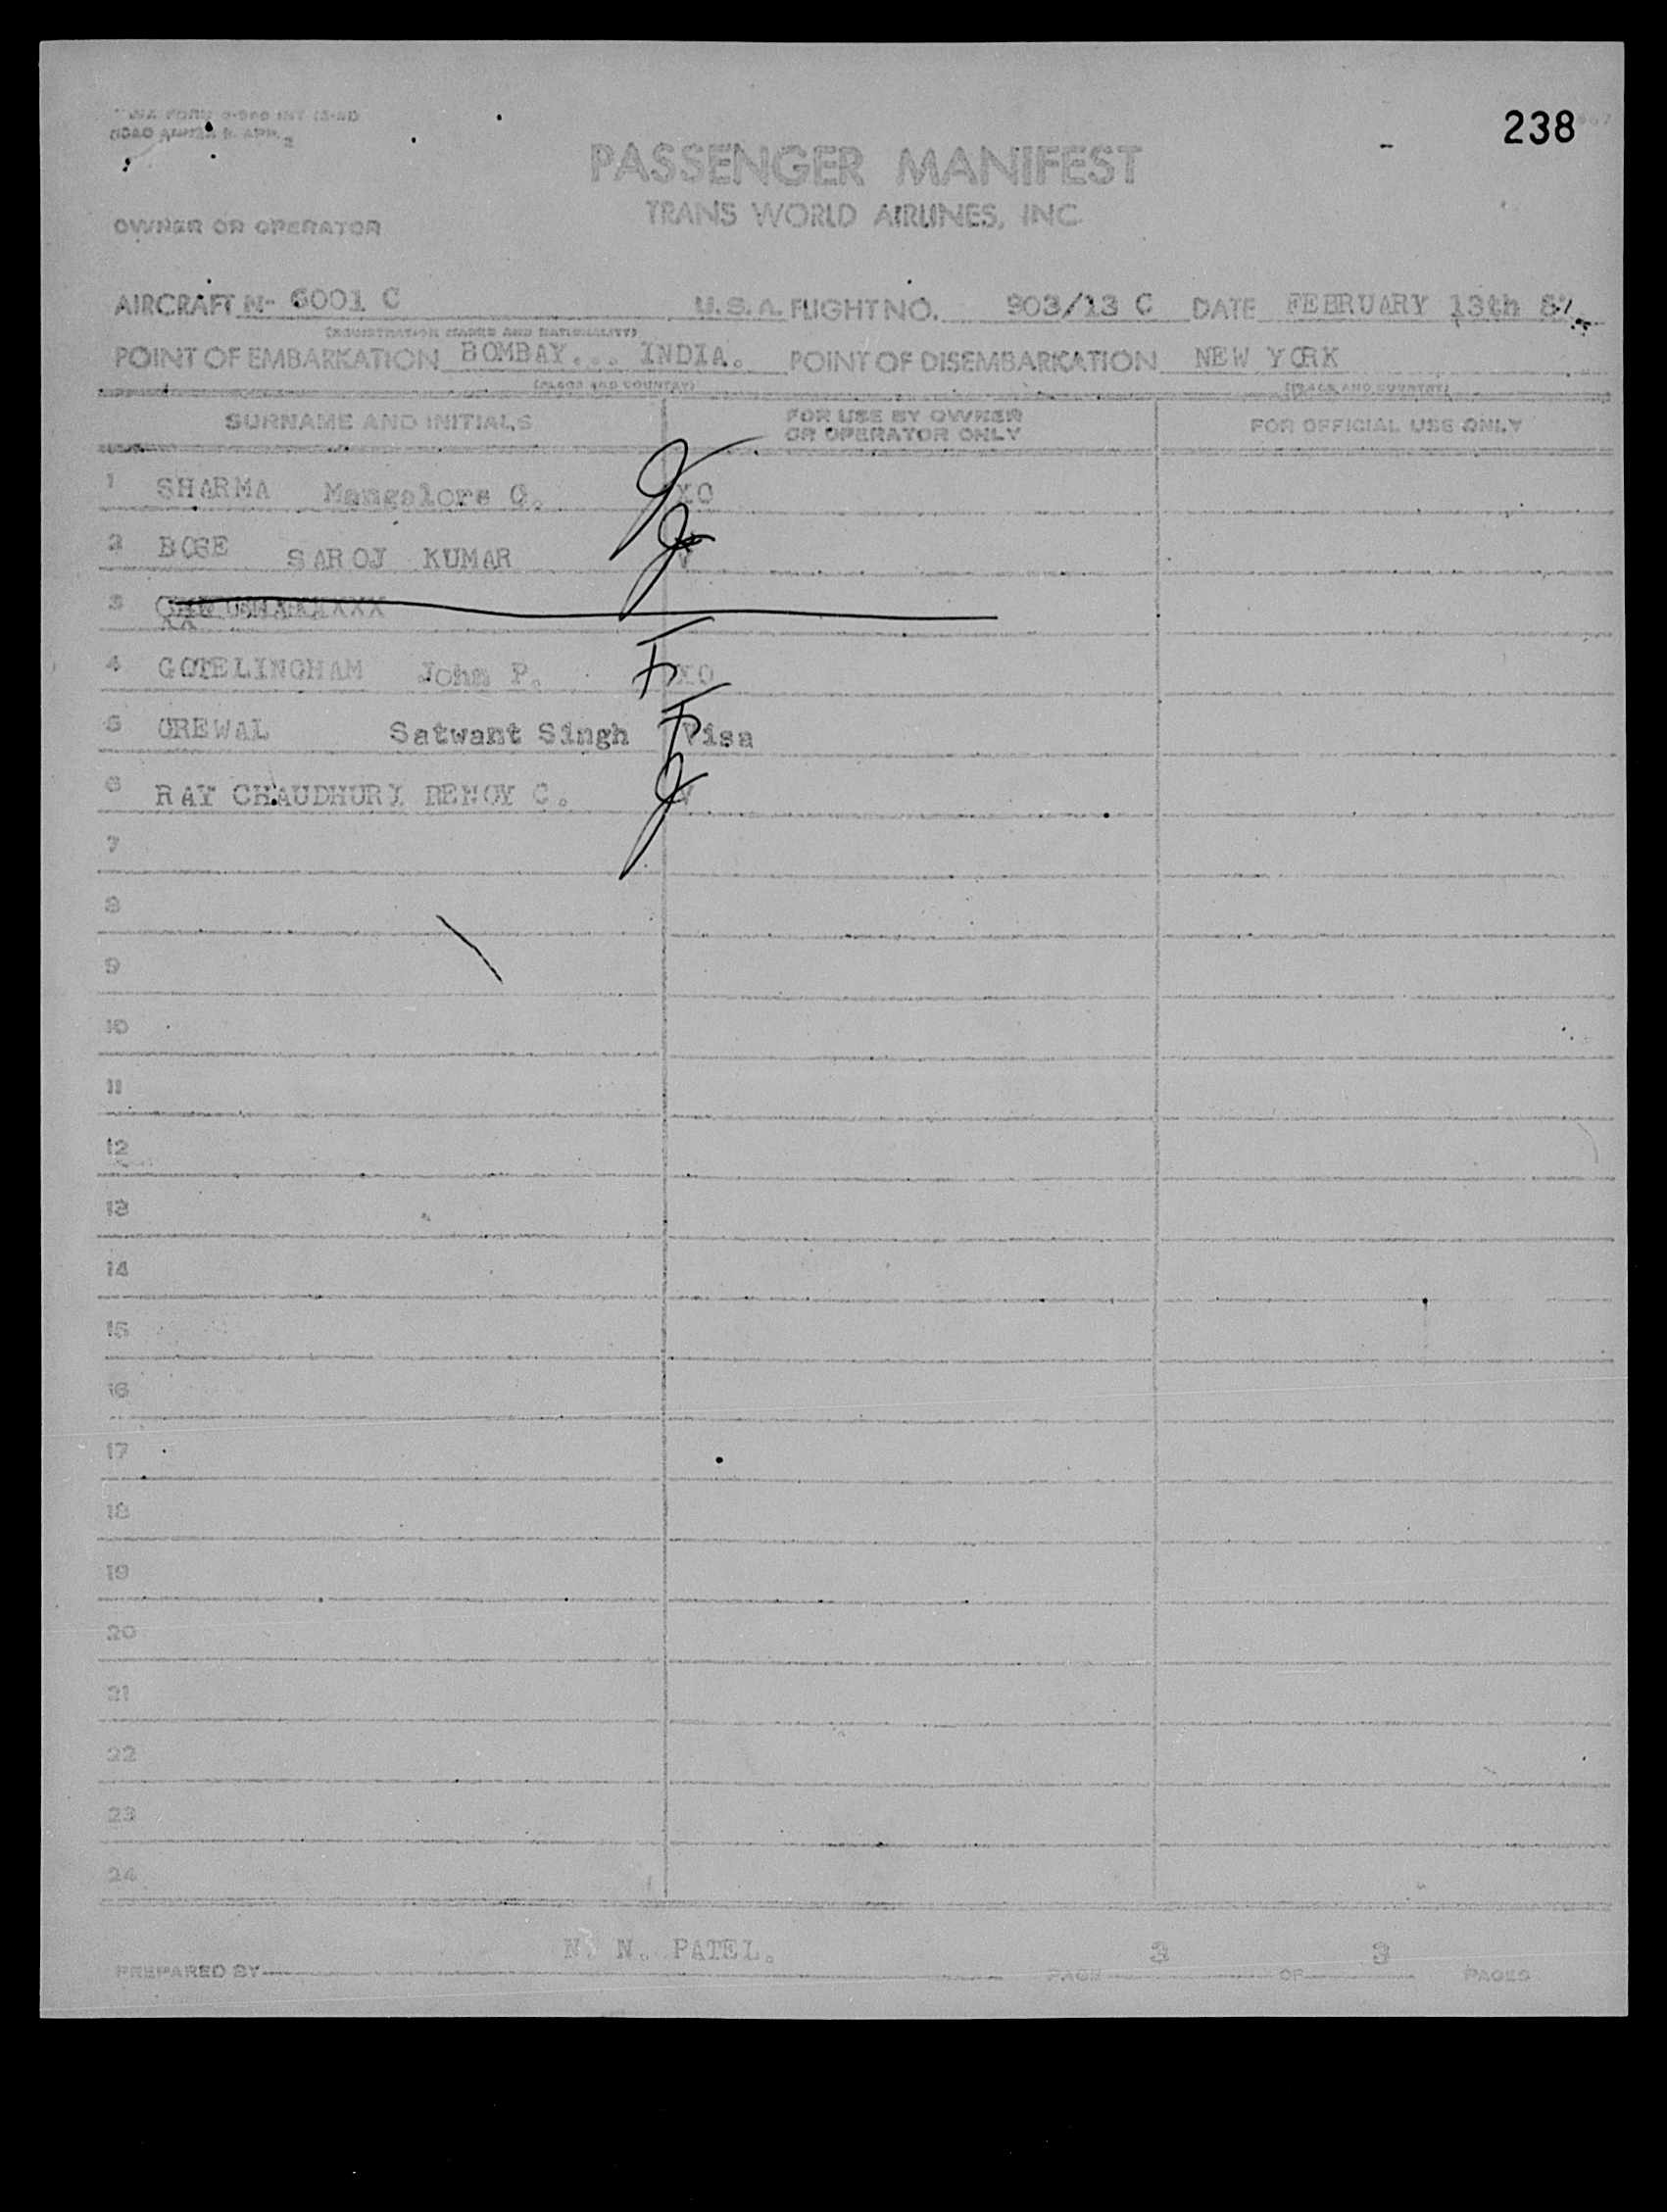 238
PASSENGER MANIFEST
TRANS WORLD AIRLINES, INC
OWNER OR OPERATOR
AIRCRAFT N- 6001 C U.S.A. FLIGHT NO. 903/13 C DATE FEBRUARY 13th
(REGISTRATION MARKS AND NATIONALITY)
POINT OF EMBARKATION BOMBAY... INDIA. POINT OF DISEMBARKATION NEW YORK
(PLACE AND COUNTRY) (PLACE AND COUNTRY)
SURNAME AND INITIALS FOR USE BY OWNER OR OPERATOR ONLY FOR OFFICIAL USE ONLY
1 SHARMA Mangalore G. XO
2 BOSE SAROJ KUMAR V
3
4 GOTELINGHAM John P. F XO
5 GREWAL Satwant Singh F Visa
6 RAY CHAUDHURI BENOY C. V
7
8
9
10
11
12
13
14
15
16
17
18
19
20
21
22
23
24
PREPARED BY N. N. PATEL. PAGE 3 OF 3 PAGES